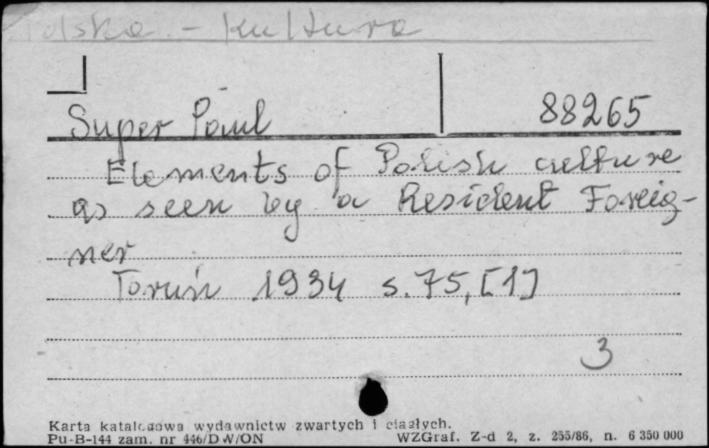 Polska - Kultura
88265
Super Paul
Elements of Polish culture
as seen by a Resident Foreig-
ner
Toruń 1934 s. 75, [1]
3
Karta katalogowa wydawnictw zwartych i ciągłych.
Pu-B-144 zam. nr 446/DW/ON WZGraf. Z-d 2, z. 255/86, n. 6 350 000